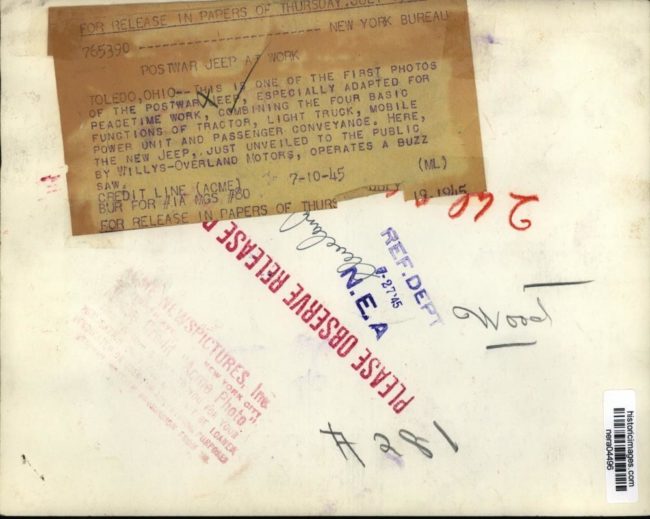 FOR RELEASE IN PAPERS OF THURSDAY, JULY
765390 NEW YORK BUREAU
POSTWAR JEEP AT WORK
TOLEDO, OHIO--THIS IS ONE OF THE FIRST PHOTOS
OF THE POSTWAR JEEP, ESPECIALLY ADAPTED FOR
PEACETIME WORK, COMBINING THE FOUR BASIC
FUNCTIONS OF TRACTOR, LIGHT TRUCK, MOBILE
POWER UNIT AND PASSENGER CONVEYANCE. HERE,
THE NEW JEEP, JUST UNVEILED TO THE PUBLIC
BY WILLYS-OVERLAND MOTORS, OPERATES A BUZZ
SAW.
CREDIT LINE (ACME) 7-10-45 (ML)
BUR FOR #1A MGS #80
FOR RELEASE IN PAPERS OF THURS 1945
PLEASE OBSERVE RELEASE D
Cleveland
REF. DEPT
7-27'45
N.E.A
Wood
NEWSPICTURES, Inc.
NEW YORK CITY
Acme Photo"
historicimages.com
nera04496